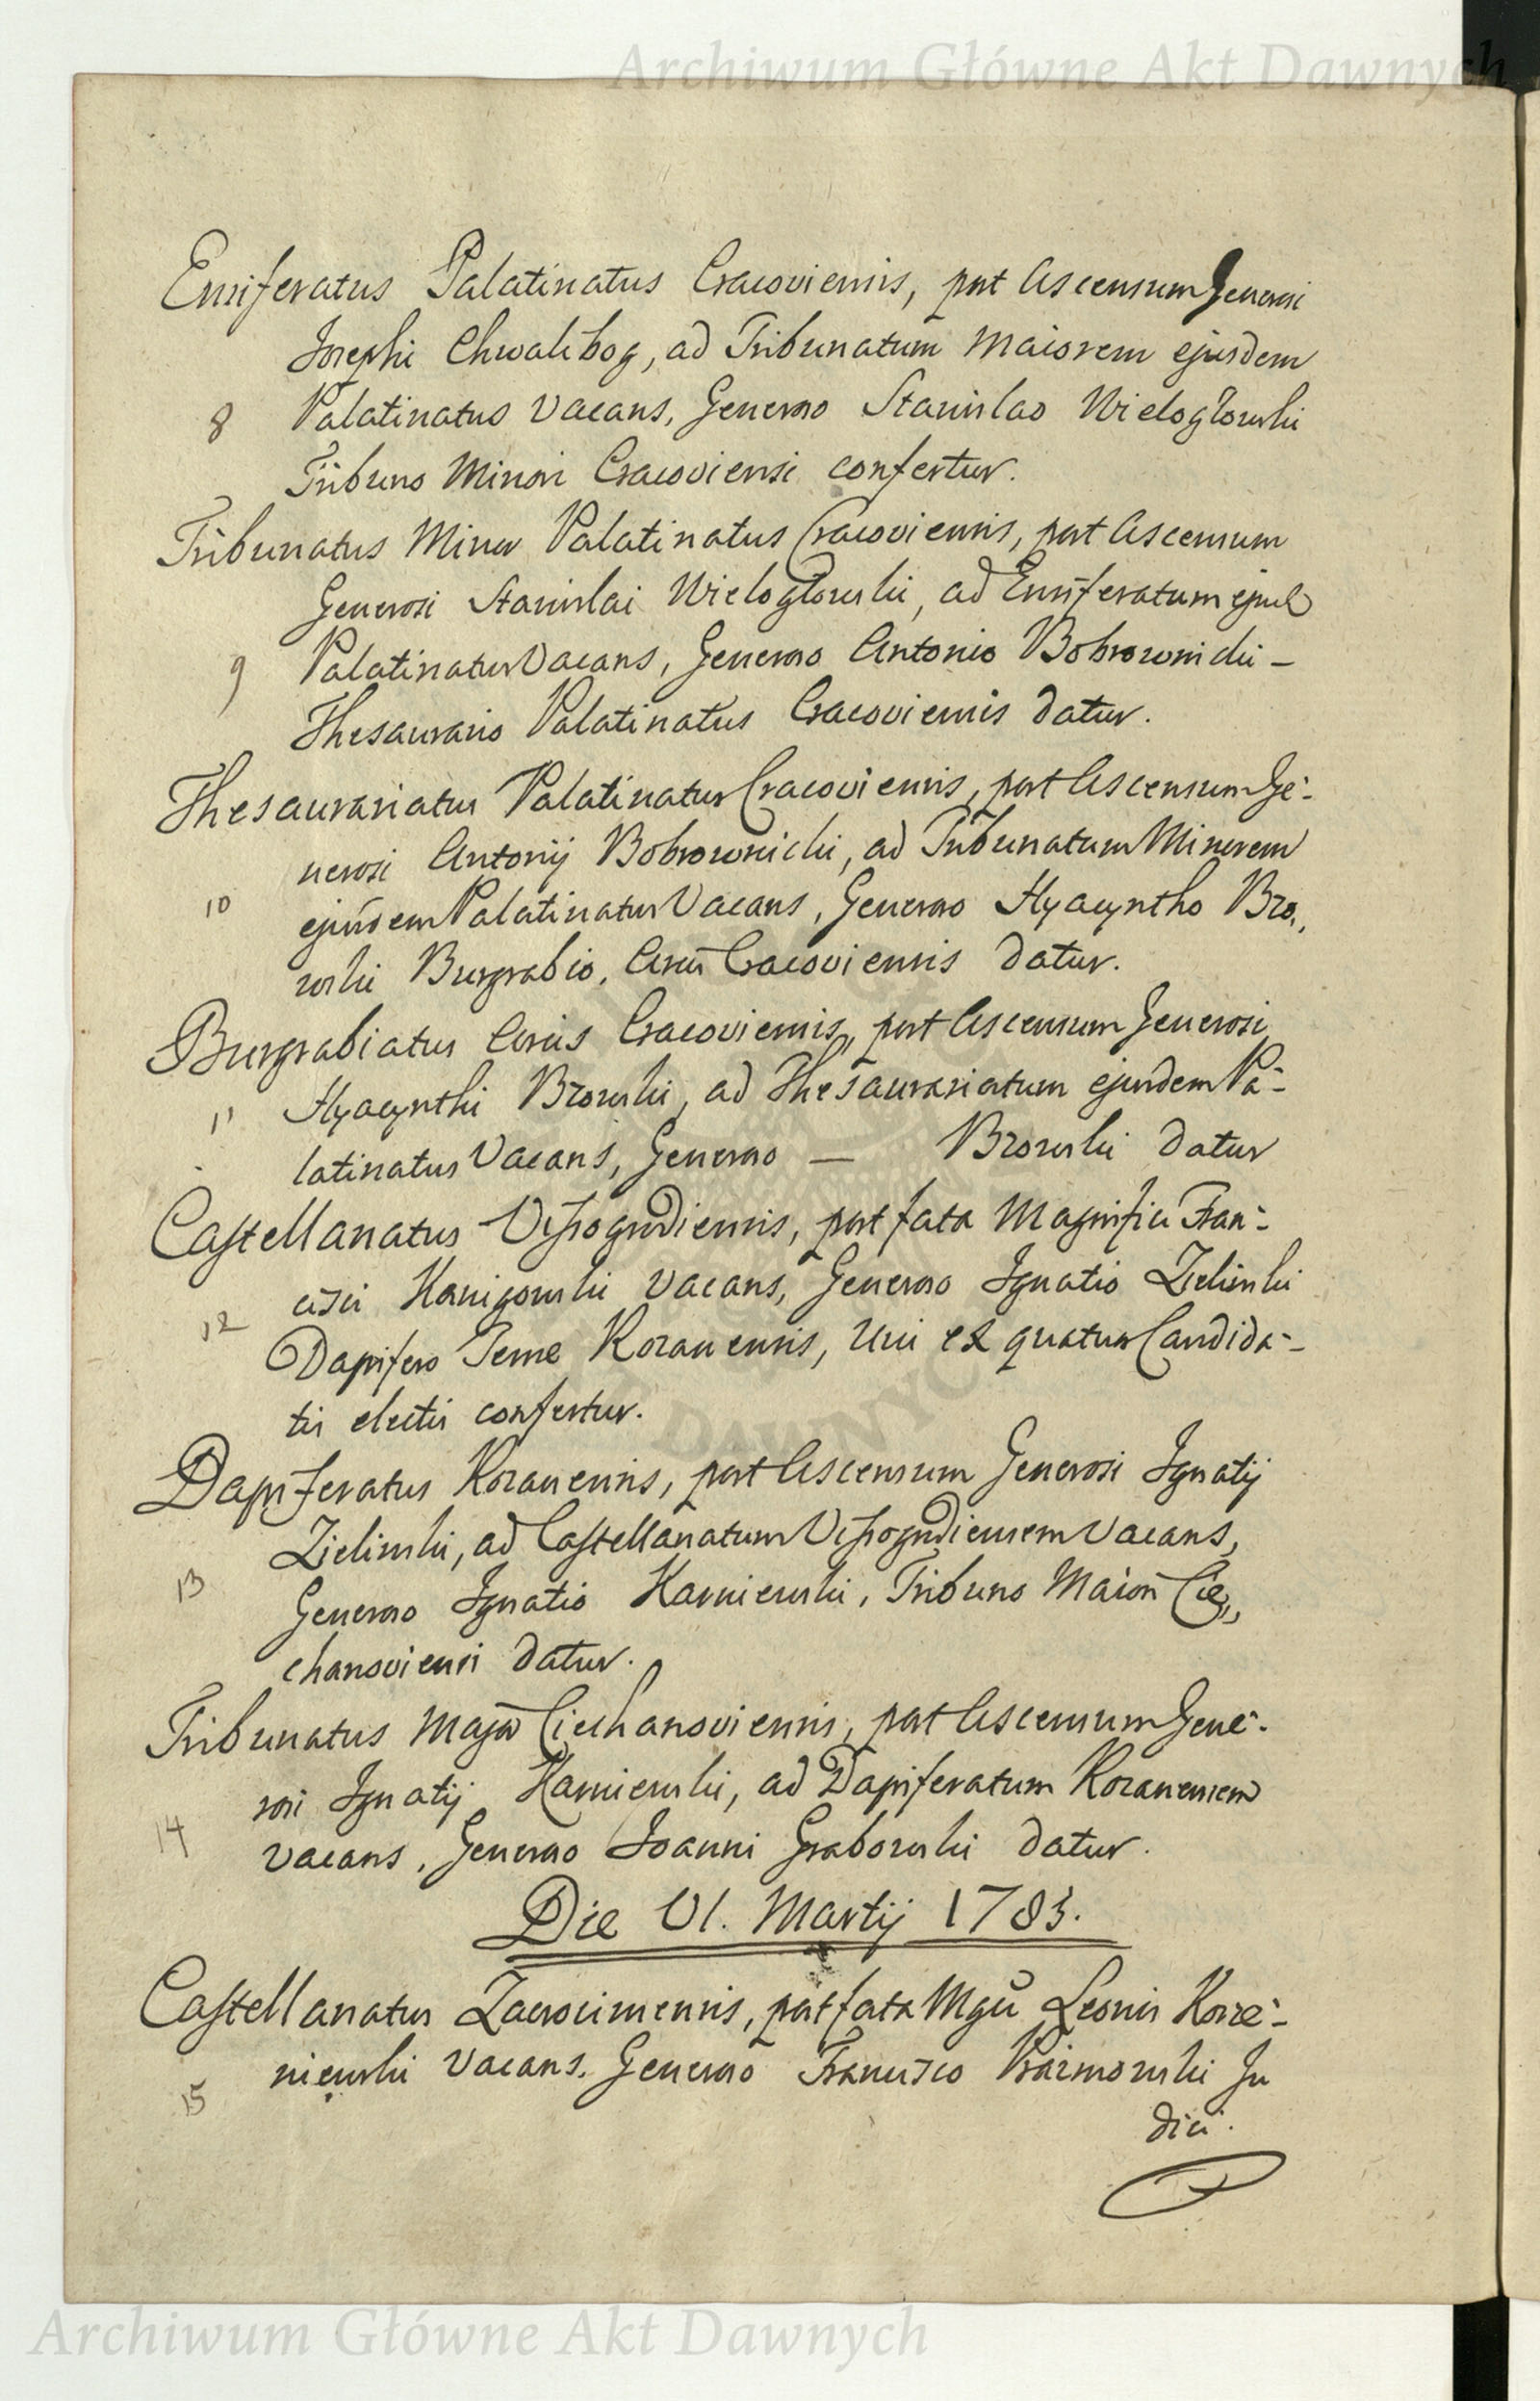 Archiwum Główne Akt Dawnych
Ensiferatus Palatinatus Cracoviensis, post Ascensum Generosi
Josephi Chwalibog, ad Tribunatum Maiorem ejusdem
8 Palatinatus Vacans, Generoso Stanislao Wielogłowski
Tribuno Minori Cracoviensi confertur.
Tribunatus Minor Palatinatus Cracoviensis, post Ascensum
Generosi Stanislai Wielogłowski, ad Ensiferatum ejusd
9 Palatinatus Vacans, Generoso Antonio Bobrownicki –
Thesaurario Palatinatus Cracoviensis datur.
Thesaurariatus Palatinatus Cracoviensis, post Ascensum Ge-
nerosi Antonij Bobrownicki, ad Tribunatum Minorem
10 ejusdem Palatinatus Vacans, Generoso Hyacyntho Bzo,,
wski Burgrabio, Arcis Cracoviensis datur.
Burgrabiatus Arcis Cracoviensis, post Ascensum Generosi
11 Hyacynthi Bzowski, ad Thesaurariatum ejusdem Pa-
latinatus Vacans, Generoso — Bzowski datur
Castellanatus Vissogrodiensis, post fata Magnifici Fran-
12 cisci Kanigowski Vacans, Generoso Ignatio Zielinski
Dapifero Terrae Rozanensis, Uni ex quatuor Candida-
tis electis confertur.
Dapiferatus Rozanensis, post Ascensum Generosi Ignatij
Zielinski, ad Castellanatum Vissogrodiensem Vacans,
13 Generoso Ignatio Karniewski, Tribuno Maiori Cie,,
chanoviensi datur.
Tribunatus Major Ciechanoviensis, post Ascensum Gene-
rosi Ignatij Karniewski, ad Dapiferatum Rozanensem
14 vacans, Generoso Joanni Grabowski datur.
Die VI. Martij 1783.
Castellanatus Zacrocimensis, post fata Mgci Leonis Korze-
15 niewski Vacans. Generoso Francisco Kraimowski Ju
dici.
Archiwum Główne Akt Dawnych